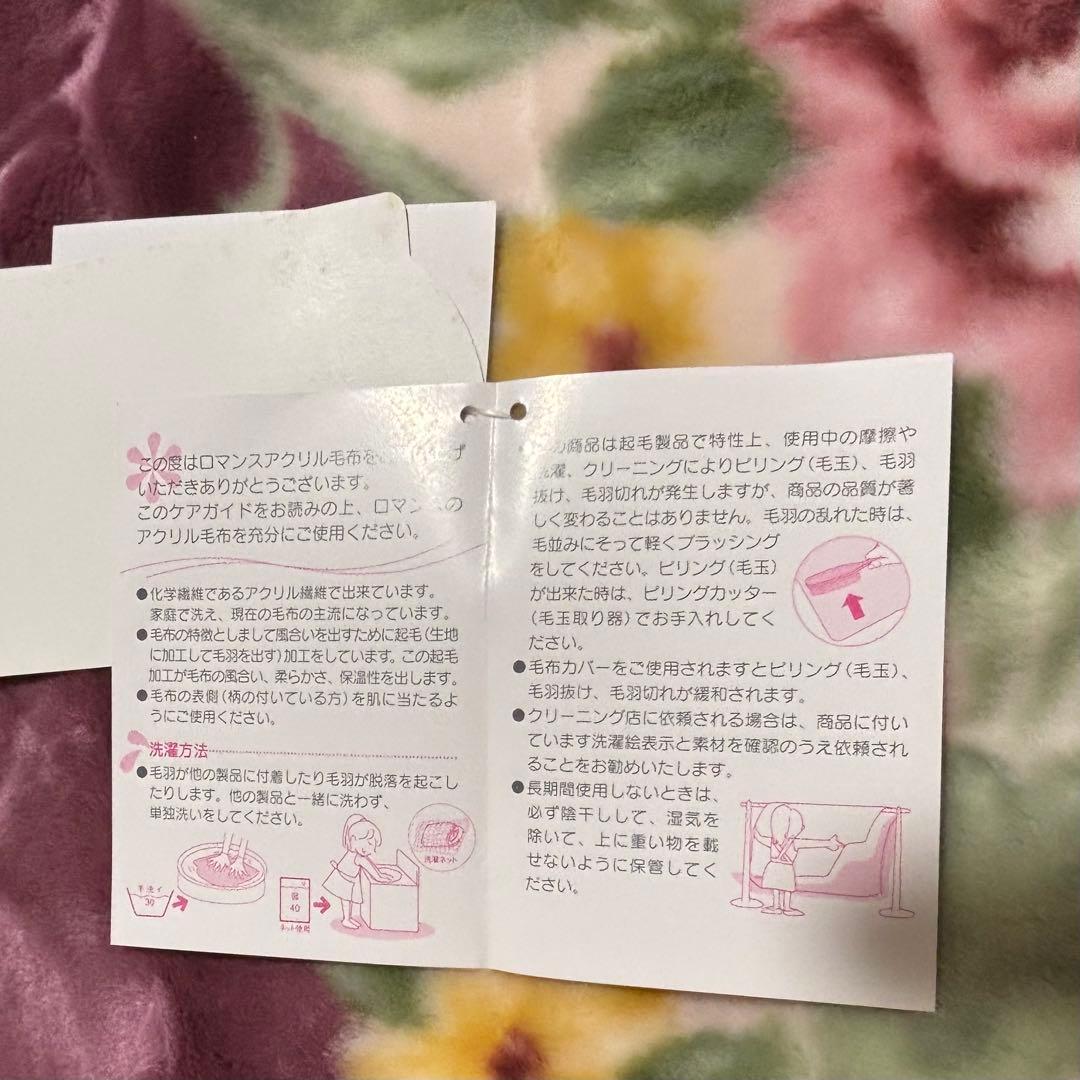 この度はロマンスアクリル毛布を
いただきありがとうございます。
このケアガイドをお読みの上、ロマンスの
アクリル毛布を充分にご使用ください。
●化学繊維であるアクリル繊維で出来ています。
家庭で洗え、現在の毛布の主流になっています。
●毛布の特徴としまして風合いを出すために起毛(生地
に加工して毛羽を出す)加工をしています。この起毛
加工が毛布の風合い、柔らかさ、保温性を出します。
●毛布の表側(柄の付いている方)を肌に当たるよ
うにご使用ください。
洗濯方法
●毛羽が他の製品に付着したり毛羽が脱落を起こし
たりします。他の製品と一緒に洗わず、
単独洗いをしてください。
洗濯ネット
手洗イ
30
弱
40
ネット使用
商品は起毛製品で特性上、使用中の摩擦や
洗濯、クリーニングによりピリング(毛玉)、毛羽
抜け、毛羽切れが発生しますが、商品の品質が著
しく変わることはありません。毛羽の乱れた時は、
毛並みにそって軽くブラッシング
をしてください。ピリング(毛玉)
が出来た時は、ピリングカッター
(毛玉取り器)でお手入れしてく
ださい。
●毛布カバーをご使用されますとピリング(毛玉)、
毛羽抜け、毛羽切れが緩和されます。
●クリーニング店に依頼される場合は、商品に付い
ています洗濯絵表示と素材を確認のうえ依頼され
ることをお勧めいたします。
●長期間使用しないときは、
必ず陰干しして、湿気を
除いて、上に重い物を載
せないように保管してく
ださい。